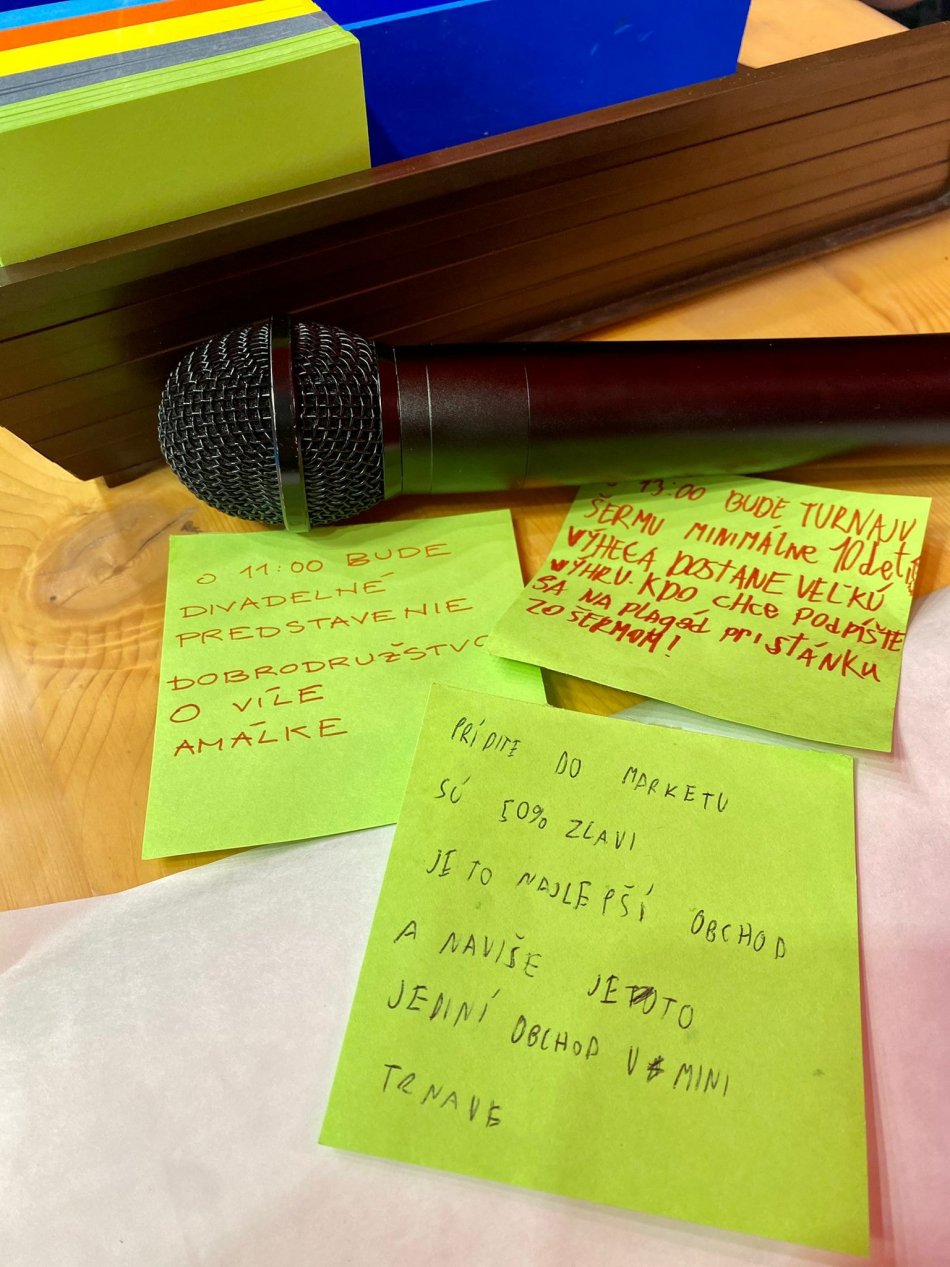 O 11:00 BUDE
DIVADELNÉ
PREDSTAVENIE
DOBRODRUŽSTVO
O VÍLE
AMÁLKE
13:00 BUDE TURNAJ V
ŠERMU MINIMÁLNE 10 detí
VÝHECA DOSTANE VEĽKÚ
VÝHRU. KDO CHCE PODPÍŠTE
SA NA PLAGÁD PRI STÁNKU
ZO ŠERMOM!
PRÍDITE DO MARKETU
SÚ 50% ZLAVI
JE TO NAJLEPŠÍ OBCHOD
A NAVIŠE JE TO
JEDINÍ OBCHOD V MINI
TRNAVE